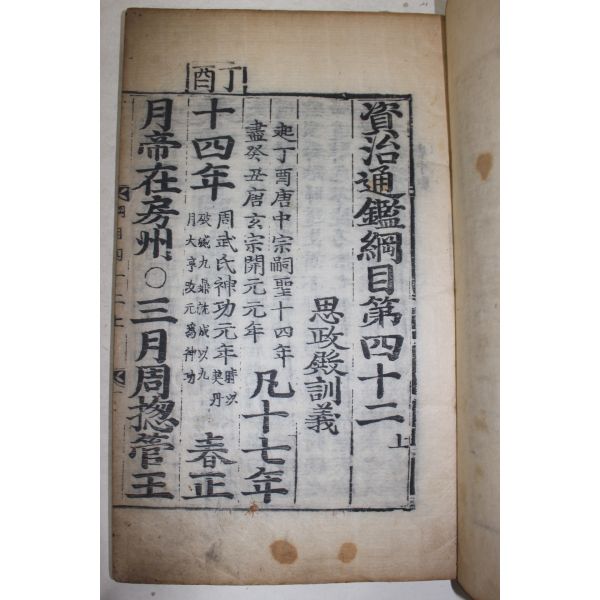 資治通鑑綱目第四十二 上
思政殿訓義
起丁酉唐中宗嗣聖十四年
盡癸丑唐玄宗開元元年
凡十七年
丁酉
十四年
周武氏神功元年
破滅九鼎既成以九
月大享改元為神功
春正
月帝在房州○三月周揔管王